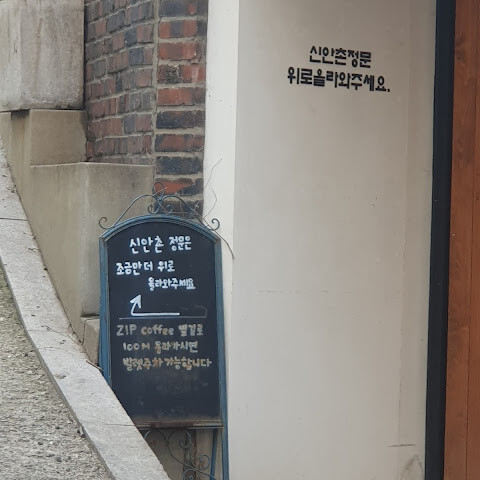 신안촌정문
위로올라와주세요.
신안촌 정문은
조금만 더 위로
올라와주세요
ZIP coffee 옆길로
100M 올라가시면
발렛주차가능합니다